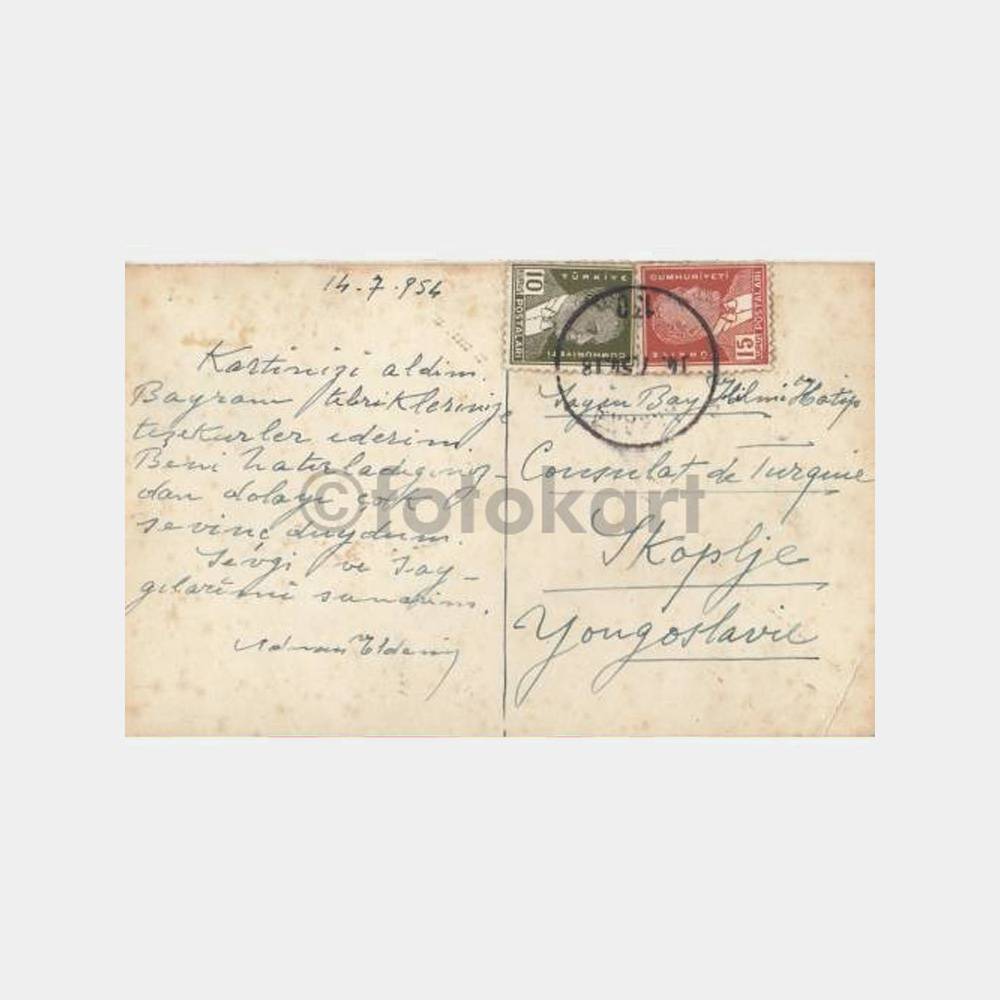 14.7.954
Kartinizi aldim.
Bayram tebriklerinize
teşekürler ederim.
Beni hatırladığınız-
dan dolayı çok
sevinç duydum.
Sevgi ve Say-
gılarımı sunarım.
Adnan
10
TÜRKİYE
CUMHURİYETİ
KURUŞ POSTALARI
15
TÜRKİYE
CUMHURİYETİ
KURUŞ POSTALARI
Sayın Bay Hilmi Hatip
Consulat de Turquie
Skoplje
Yougoslavie
©fotokart